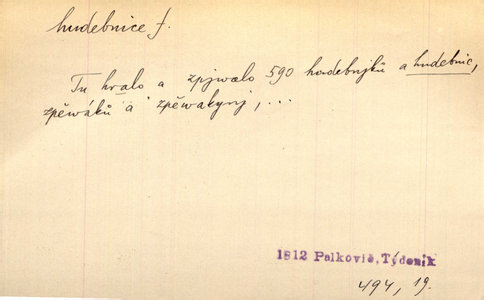 hudebnice f.
Tu hralo a zpjwalo 590 hudebnjků a hudebnic,
zpěwáků a zpěwakynj, ...
1812 Palkovič, Týdenník
494, 19.